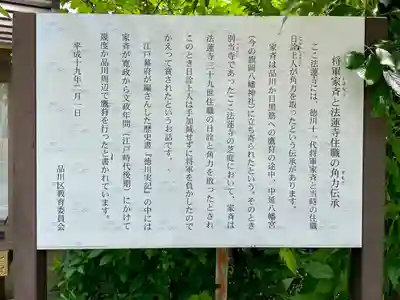 将軍家斉と法蓮寺住職の角力伝承
ここ法蓮寺には、徳川十一代将軍家斉と当時の住職
日詮上人が角力を取ったという伝承があります。
家斉は品川か目黒筋への鷹狩の途中、中延八幡宮
(今の旗岡八幡神社)に立ち寄られたという。そのとき
別当寺であったここ法蓮寺の芝庭において、家斉は
法蓮寺二十九世住職の日詮と角力を取ったとされ
このとき日詮上人は手加減せずに将軍を負かしたので
かえって賞されたというお話です。
江戸幕府が編さんした歴史書『徳川実記』の中には
家斉が寛政から文政年間(江戸時代後期)にかけて
幾度か品川周辺で鷹狩を行ったと書かれています。
平成十九年二月一日
品川区教育委員会